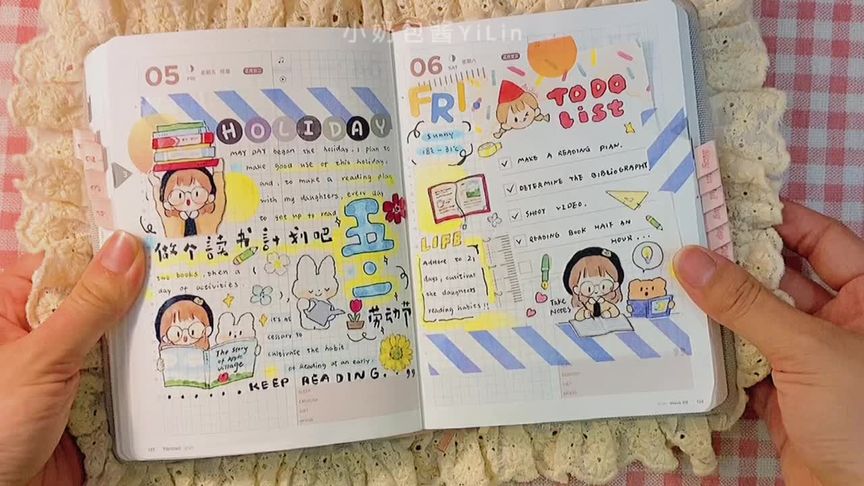 小奶包酱YiLin
05
FRI
星期五
HOLIDAY
MAY DAY began the holiday. I plan to
make good use of this holiday.
and to make a reading plan
with my daughters, every day
to get up to read
做个读书计划吧
two books, then a
day of activities
五一
劳动节
it's
cessary to
cultivate the habit
of Reading at an early.
The Story
of Apple
Village
KEEP READING...
06
SAT
星期六
FRI.
TO DO
List
sunny
18℃-31℃
MAKE A READING PLAN.
DETERMINE THE BIBLIOGRAPHY
SHOOT VIDEO.
READING BOOK HALF AN
HOUR...
LIFE
Adhere to 21
days, cultivat
the daughters
reading habits!!
TAKE
NOTES